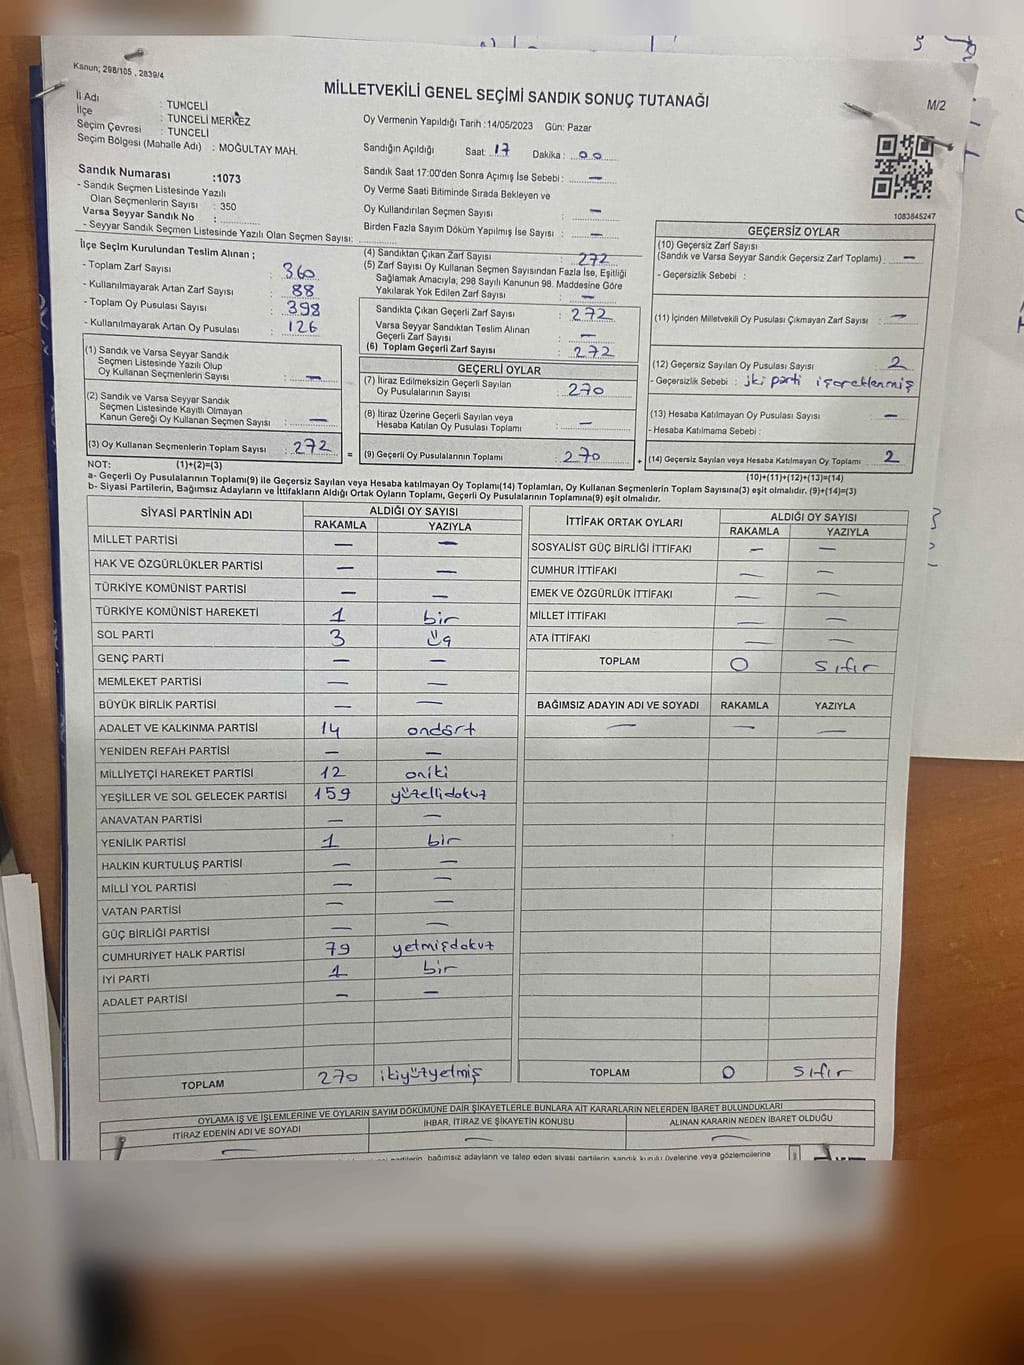 Kanun; 298/105 . 2839/4
MİLLETVEKİLİ GENEL SEÇİMİ SANDIK SONUÇ TUTANAĞI
M/2
İl Adı : TUNCELİ
İlçe : TUNCELİ MERKEZ
Seçim Çevresi : TUNCELİ
Seçim Bölgesi (Mahalle Adı) : MOĞULTAY MAH.
Oy Vermenin Yapıldığı Tarih :14/05/2023 Gün: Pazar
Sandığın Açıldığı Saat: 17 Dakika : 00
Sandık Saat 17:00'den Sonra Açımış İse Sebebi : —
Oy Verme Saati Bitiminde Sırada Bekleyen ve
Oy Kullandırılan Seçmen Sayısı : —
Birden Fazla Sayım Döküm Yapılmış İse Sayısı : —
1083845247
Sandık Numarası :1073
- Sandık Seçmen Listesinde Yazılı
Olan Seçmenlerin Sayısı : 350
Varsa Seyyar Sandık No :
- Seyyar Sandık Seçmen Listesinde Yazılı Olan Seçmen Sayısı:
İlçe Seçim Kurulundan Teslim Alınan ;
- Toplam Zarf Sayısı : 360
- Kullanılmayarak Artan Zarf Sayısı : 88
- Toplam Oy Pusulası Sayısı : 398
- Kullanılmayarak Artan Oy Pusulası : 126
(1) Sandık ve Varsa Seyyar Sandık
Seçmen Listesinde Yazılı Olup
Oy Kullanan Seçmenlerin Sayısı : —
(2) Sandık ve Varsa Seyyar Sandık
Seçmen Listesinde Kayıtlı Olmayan
Kanun Gereği Oy Kullanan Seçmen Sayısı : —
(3) Oy Kullanan Seçmenlerin Toplam Sayısı : 272 =
(4) Sandıktan Çıkan Zarf Sayısı : 272
(5) Zarf Sayısı Oy Kullanan Seçmen Sayısından Fazla İse, Eşitliği
Sağlamak Amacıyla; 298 Sayılı Kanunun 98. Maddesine Göre
Yakılarak Yok Edilen Zarf Sayısı : —
Sandıkta Çıkan Geçerli Zarf Sayısı : 272
Varsa Seyyar Sandıktan Teslim Alınan
Geçerli Zarf Sayısı : —
(6) Toplam Geçerli Zarf Sayısı : 272
GEÇERLİ OYLAR
(7) İtiraz Edilmeksizin Geçerli Sayılan
Oy Pusulalarının Sayısı : 270
(8) İtiraz Üzerine Geçerli Sayılan veya
Hesaba Katılan Oy Pusulası Toplamı : —
(9) Geçerli Oy Pusulalarının Toplamı : 270 +
GEÇERSİZ OYLAR
(10) Geçersiz Zarf Sayısı
(Sandık ve Varsa Seyyar Sandık Geçersiz Zarf Toplamı) : —
- Geçersizlik Sebebi :
(11) İçinden Milletvekili Oy Pusulası Çıkmayan Zarf Sayısı : —
(12) Geçersiz Sayılan Oy Pusulası Sayısı : 2
- Geçersizlik Sebebi : iki parti işaretlenmiş
(13) Hesaba Katılmayan Oy Pusulası Sayısı : —
- Hesaba Katılmama Sebebi :
(14) Geçersiz Sayılan veya Hesaba Katılmayan Oy Toplamı : 2
NOT: (1)+(2)=(3)
(10)+(11)+(12)+(13)=(14)
a- Geçerli Oy Pusulalarının Toplamı(9) ile Geçersiz Sayılan veya Hesaba katılmayan Oy Toplamı(14) Toplamları, Oy Kullanan Seçmenlerin Toplam Sayısına(3) eşit olmalıdır. (9)+(14)=(3)
b- Siyasi Partilerin, Bağımsız Adayların ve İttifakların Aldığı Ortak Oyların Toplamı, Geçerli Oy Pusulalarının Toplamına(9) eşit olmalıdır.
SİYASİ PARTİNİN ADI ALDIĞI OY SAYISI
RAKAMLA YAZIYLA
MİLLET PARTİSİ — —
HAK VE ÖZGÜRLÜKLER PARTİSİ — —
TÜRKİYE KOMÜNİST PARTİSİ — —
TÜRKİYE KOMÜNİST HAREKETİ 1 bir
SOL PARTİ 3 üç
GENÇ PARTİ — —
MEMLEKET PARTİSİ — —
BÜYÜK BİRLİK PARTİSİ — —
ADALET VE KALKINMA PARTİSİ 14 ondört
YENİDEN REFAH PARTİSİ — —
MİLLİYETÇİ HAREKET PARTİSİ 12 oniki
YEŞİLLER VE SOL GELECEK PARTİSİ 159 yüzellidokuz
ANAVATAN PARTİSİ — —
YENİLİK PARTİSİ 1 bir
HALKIN KURTULUŞ PARTİSİ — —
MİLLİ YOL PARTİSİ — —
VATAN PARTİSİ — —
GÜÇ BİRLİĞİ PARTİSİ — —
CUMHURİYET HALK PARTİSİ 79 yetmişdokuz
İYİ PARTİ 1 bir
ADALET PARTİSİ — —
TOPLAM 270 ikiyüzyetmiş
İTTİFAK ORTAK OYLARI ALDIĞI OY SAYISI
RAKAMLA YAZIYLA
SOSYALİST GÜÇ BİRLİĞİ İTTİFAKI — —
CUMHUR İTTİFAKI — —
EMEK VE ÖZGÜRLÜK İTTİFAKI — —
MİLLET İTTİFAKI — —
ATA İTTİFAKI — —
TOPLAM 0 sıfır
BAĞIMSIZ ADAYIN ADI VE SOYADI RAKAMLA YAZIYLA
— — —
TOPLAM 0 sıfır
OYLAMA İŞ VE İŞLEMLERİNE VE OYLARIN SAYIM DÖKÜMÜNE DAİR ŞİKAYETLERLE BUNLARA AİT KARARLARIN NELERDEN İBARET BULUNDUKLARI
İTİRAZ EDENİN ADI VE SOYADI İHBAR, İTİRAZ VE ŞİKAYETİN KONUSU ALINAN KARARIN NEDEN İBARET OLDUĞU
— — —
partilerin, bağımsız adayların ve talep eden siyasi partilerin sandık kurulu üyelerine veya gözlemcilerine